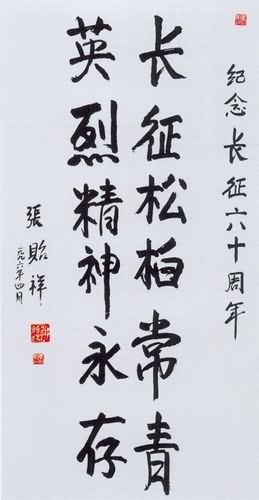 纪念长征六十周年
长征松柏常青
英烈精神永存
張貽祥
一九九六年四月